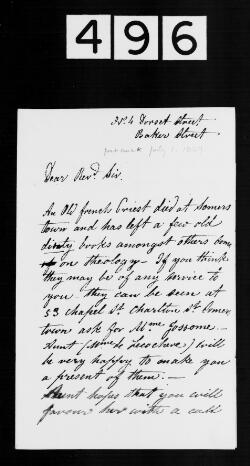 496
No 4 Dorset Street
Baker Street
postmark July 1. 1859
Dear Revd. Sir.
An Old french Priest died at Somers
town and has left a few old
dirty books amongst others some
on theology — If you think
they may be of any service to
you they can be seen at
53 Chapel St. Charlton St. Somers
town ask for Mme. Fossome —
Aunt (Mme. de Lescleve) will
be very happy to make you
a present of them. —
Aunt hopes that you will
favour her with a call